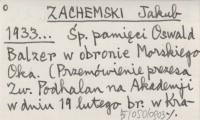 ZACHEMSKI Jakub
1933... Śp. pamięci Oswald
Balzer w obronie Morskiego
Oka. (Przemówienie prezesa
Zw. Podhalan na Akademji
w dniu 19 lutego br. w Kra-